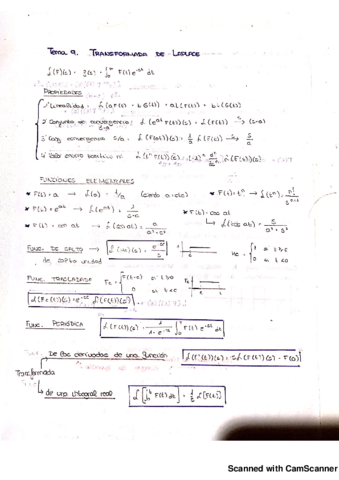 Tema 9. TRANSFORMADA DE LAPLACE
ℒ(F)(s) = ∫₀^∞ F(t) e^{-st} dt
PROPIEDADES
1' Linealidad: ℒ(aF(t) + bG(t)) = aℒ(F(t)) + bℒ(G(t))
2' Conjunto de convergencia: ℒ(e^{at} F(t))(s) = ℒ(F(t)) → (s-a)
3' Conj convergencia s/a: ℒ(F(at))(s) = 1/a ℒ(F(t)) → s/a
4' Todo entero positivo n: ℒ(t^n F(t))(s) = (-1)^n
FUNCIONES ELEMENTALES
* F(t) = a → ℒ(a) = 1/s · a (siendo a = cte)
* F(t) = t^n → ℒ(t^n) = n!/s^{n+1}
* F(t) = e^{at} → ℒ(e^{at}) = 1/s-a
* F(t) = cos at
↳ ℒ(cos at) = s/s²+a²
ℒ(sen at) = a/a²+s²
FUNC. DE SALTO → e^{-cs}/s
de salto unidad
Hc = { 1 si t>c
0 si t<c
FUNC. TRASLADADA Fc = { F(t-c) si t>c
0 si t<c
ℒ(Fc(t))(s) = e^{-sc} ℒ(F(t))(s)
FUNC. PERIÓDICA ℒ(F(t))(s) = 1/1-e^{-sT} ∫₀^T F(t) e^{-st} dt
De las derivadas de una función ℒ(F'(t))(s) = sℒ(F(t))(s) - F(0)
Transformada
de una integral real ℒ[∫₀^t F(t) dt] = 1/s ℒ(F(t))
Scanned with CamScanner